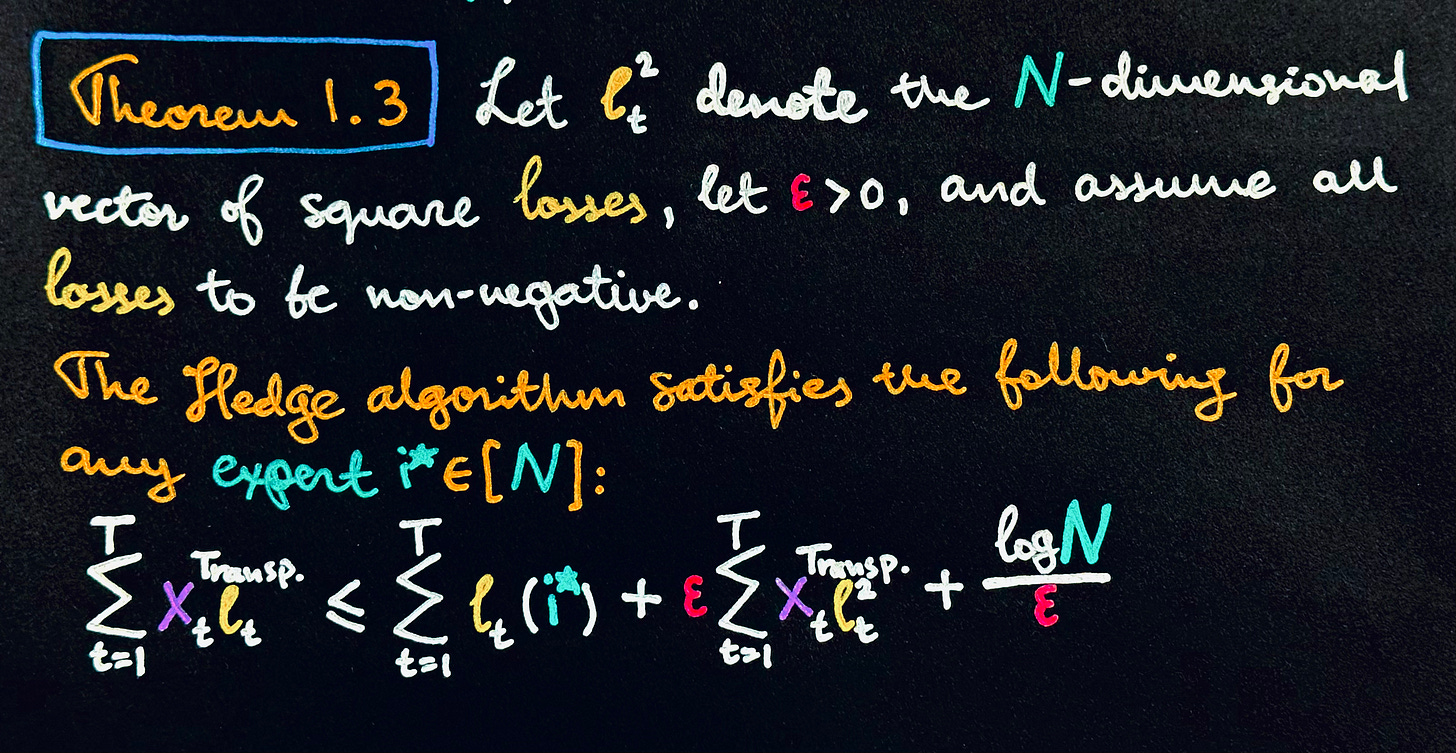 Theorem 1.3 Let ℓₜ² denote the N-dimensional
vector of square losses, let ε>0, and assume all
losses to be non-negative.
The Hedge algorithm satisfies the following for
any expert i* ∈ [N]:
∑_{t=1}^{T} xₜ^{Transp.} ℓₜ ≤ ∑_{t=1}^{T} ℓₜ(i*) + ε ∑_{t=1}^{T} xₜ^{Transp.} ℓₜ² + log N / ε